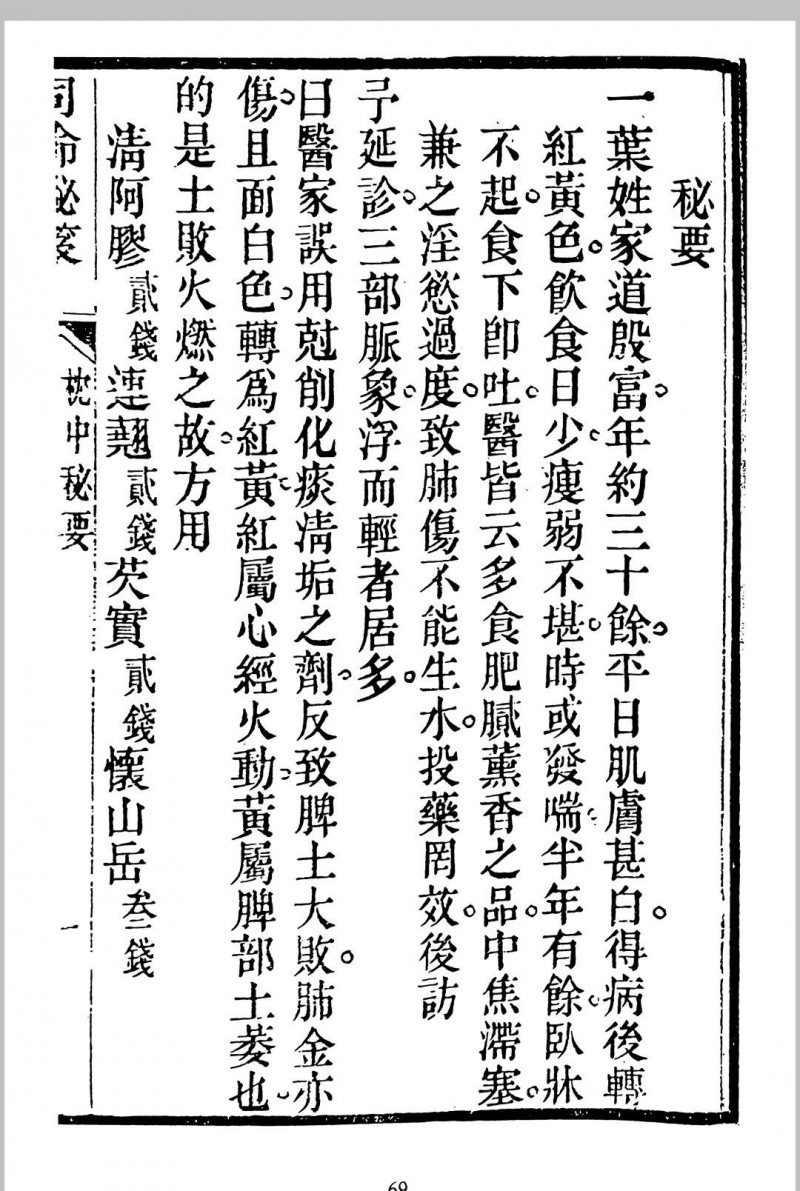 秘要
一葉姓家道殷富。年約三十餘。平日肌膚甚白。得病後轉
紅黃色。飲食日少。瘦弱不堪。時或發喘。半年有餘。臥牀
不起。食下卽吐。醫皆云多食肥膩薰香之品。中焦滯塞。
兼之淫慾過度。致肺傷不能生水。投藥罔效。後訪
予延診。三部脈象。浮而輕者居多。
曰醫家誤用尅削化痰淸垢之劑。反致脾土大敗。肺金亦
傷。且面白色。轉爲紅黃。紅屬心經火動。黃屬脾部土萎也。
的是土敗火燃之故。方用
淸阿膠 貳錢 連翹 貳錢 芡實 貳錢 懷山岳 叁錢
司命秘笈 枕中秘要 一
69